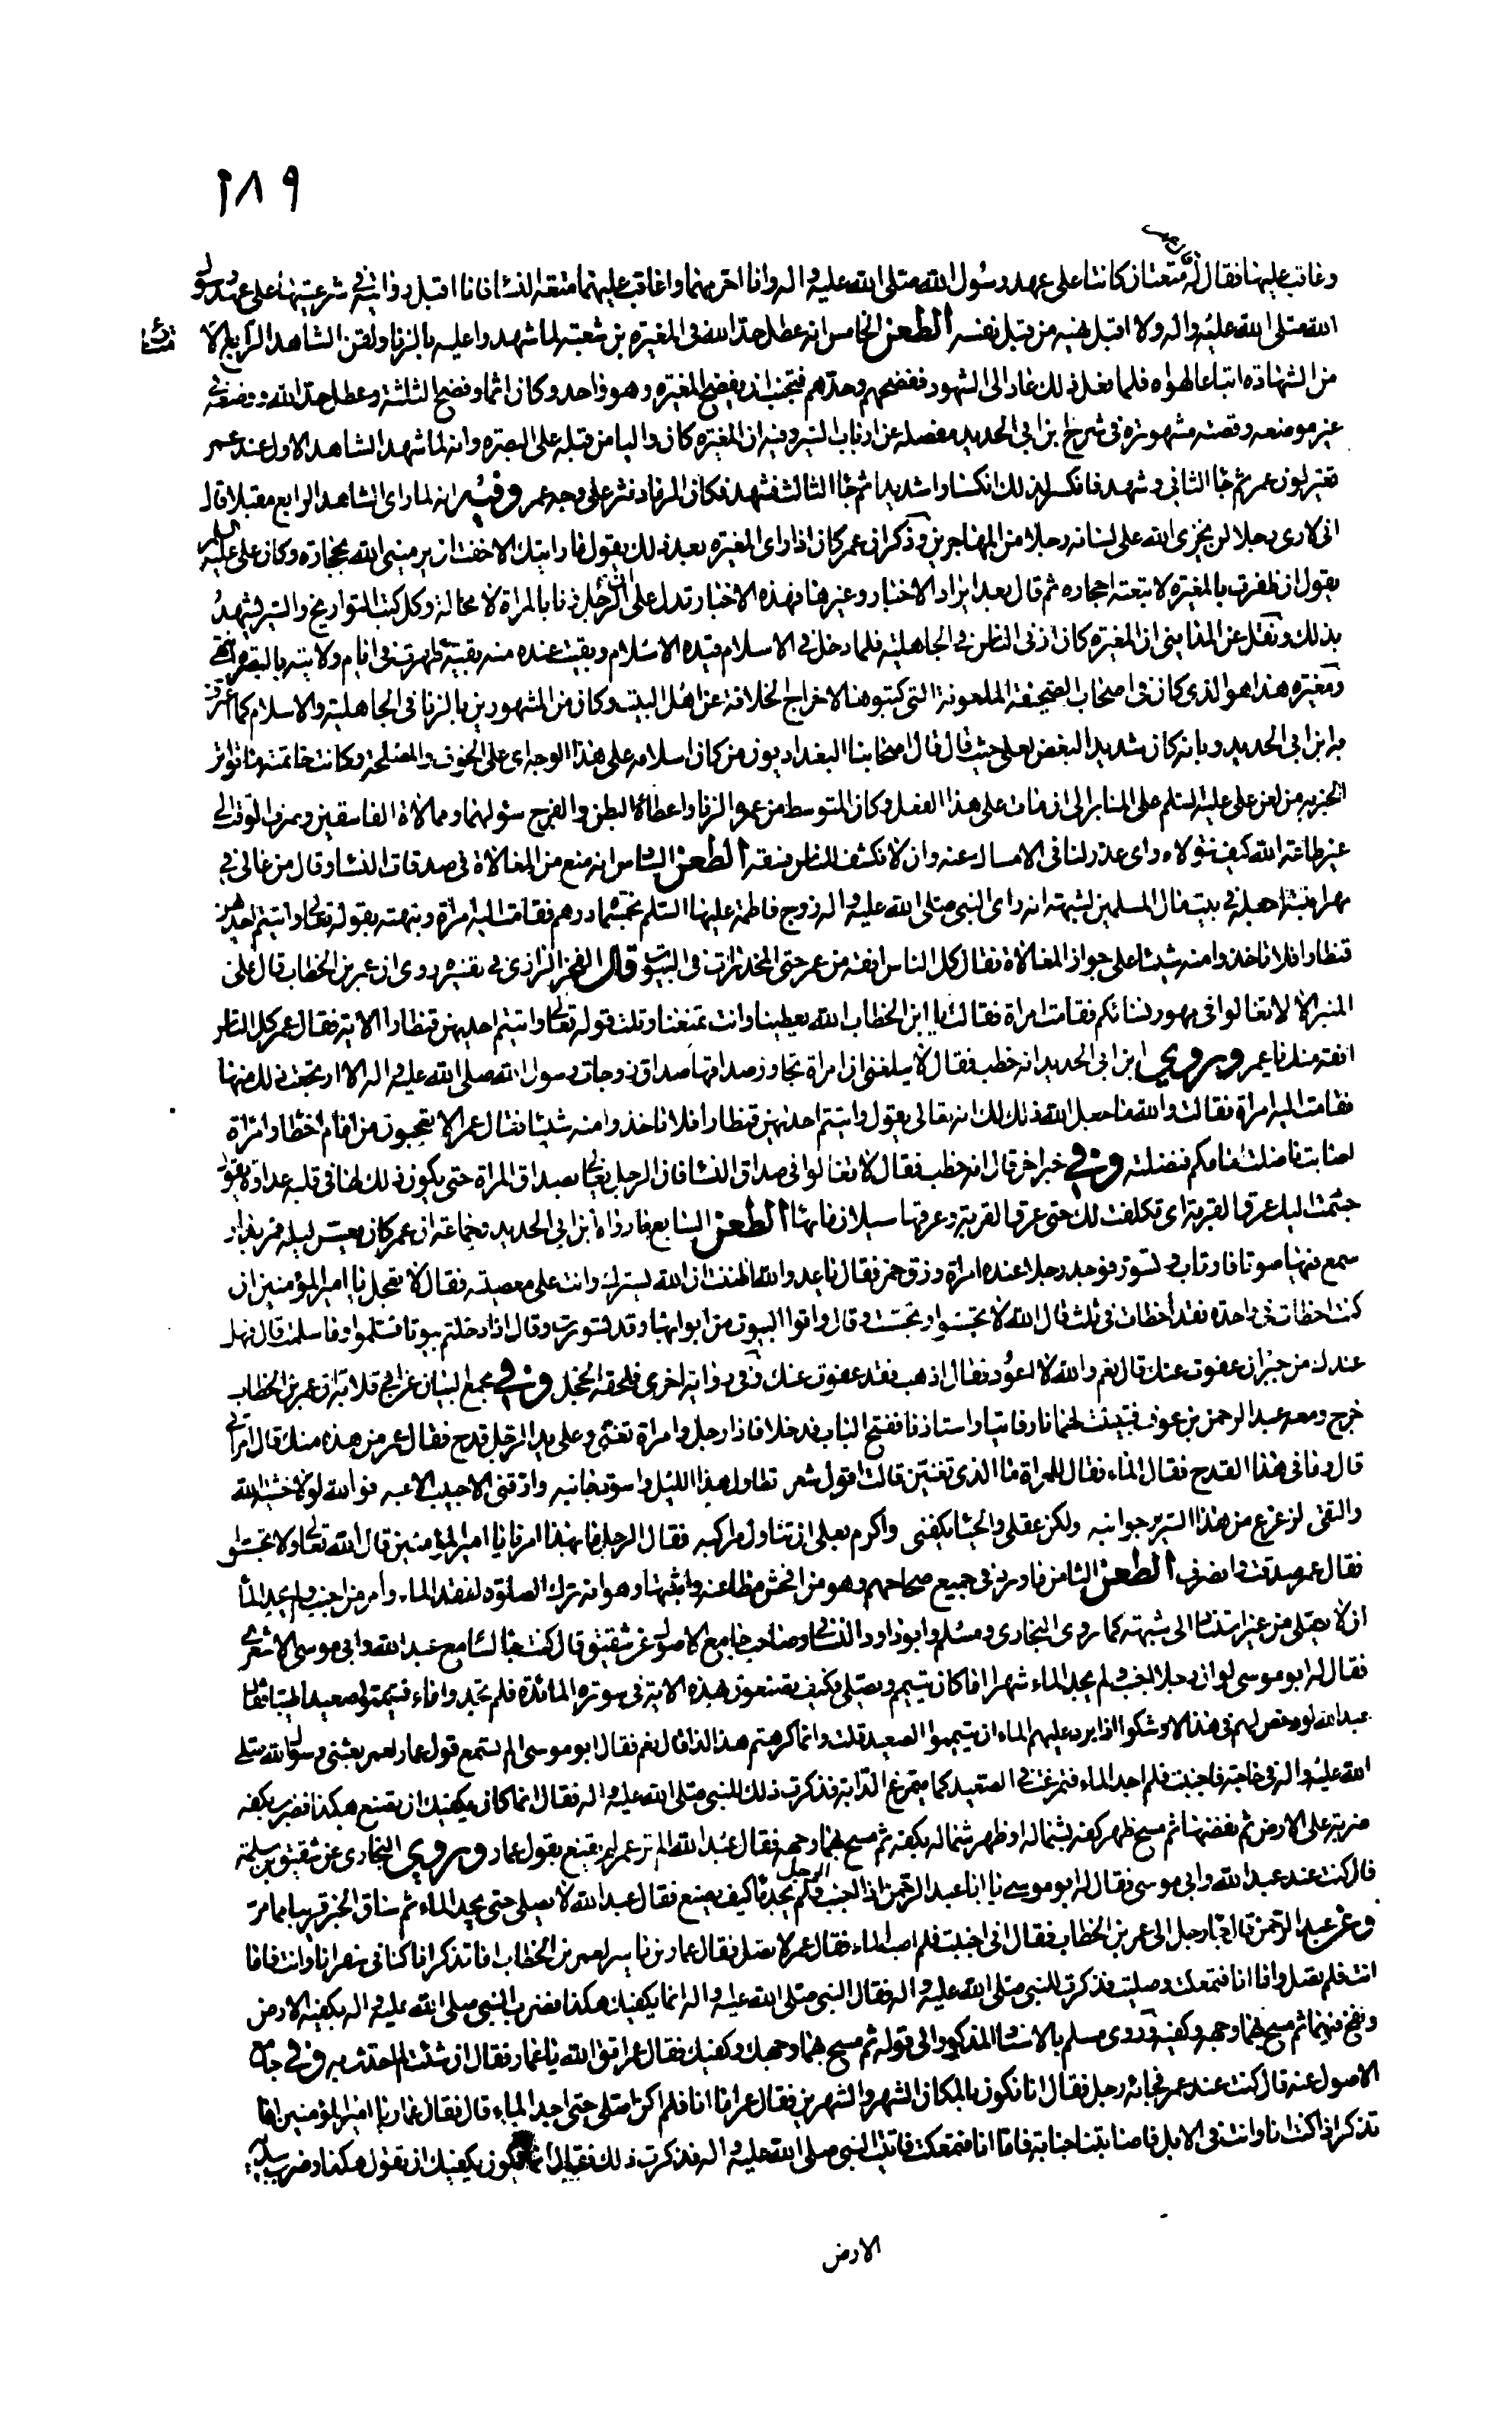 ٢٨٩
وعاقب عليها فقال له متعتان كانتا على عهد رسول الله صلى الله عليه واله وانا احرمهما واعاقب عليهما متعة النساء فانا اقبل روايته في شرعيتها على عهد رسول
الله صلى الله عليه واله ولا اقبل نهيه من قبل نفسه الطعن الخامس انه عطل حد الله في المغيرة بن شعبة لما شهدوا عليه بالزنا ولقن الشاهد الرابع الا
من الشهادة اتباعا لهواه فلما فعل ذلك عاد الى الشهود ففضحهم وحدهم فتجنب ان يفضح المغيرة وهو واحد وكان اثما وفضح الثلثة وعطل حد الله ووضعه في
غير موضعه وقصته مشهورة في شرح ابن ابي الحديد مفصلة عن ارباب السير وفيه ان المغيرة كان واليا من قبله على البصرة وانه لما شهد الشاهد الاول عند عمر
تغير لون عمر ثم جاء الثاني وشهد فانكسر لذلك انكسارا شديدا ثم جاء الثالث فشهد فكان الرماد نثر على وجه عمر وفيه انه لما راى الشاهد الرابع مقبلا قال
اني لارى رجلا لن يخزى الله على لسانه رجلا من المهاجرين وذكر ان عمر كان اذا راى المغيرة بعد ذلك يقول ما رايتك الا خفت ان يرميني الله بحجارة وكان علي عليه السلم
يقول ان ظفرت بالمغيرة لاتبعته احجاره ثم قال بعد ايراد الاخبار وغيرها فهذه الاخبار تدل على ان الرجل زنا بالمراة لا محالة وكل كتب التواريخ والسير يشهد
بذلك ونقل عن المدايني ان المغيرة كان ازنى الناس في الجاهلية فلما دخل في الاسلام قيده الاسلام وبقيت عنده منه بقية ظهرت في ايام ولايته بالبصرة
ومغيرة هذا هو الذي كان في اصحاب الصحيفة الملعونة التي كتبوها لاخراج الخلافة عن اهل البيت وكان من المشهودين بالزنا في الجاهلية والاسلام كما اعترف
به ابن ابي الحديد وبانه كان شديد البغض لعلي حيث قال قال اصحابنا البغداديون من كان اسلامه على هذا الوجه اى على الخوف والمصلحة وكانت خاتمته ما تواتر
الخبر به من لعن علي عليه السلم على المنابر الى ان مات على هذا الفعل وكان المتوسط من عمره الزنا واعطاء البطن والفرج سؤلهما وممالاة الفاسقين وصرف الوقت الى
غير طاعة الله كيف نتولاه واى عذر لنا في الامساك عنه وان لا نكشف للناس فسقه الطعن السادس انه منع من المغالاة في صدقات النساء وقال من غالى في
مهر ابنته اجعله في بيت مال المسلمين لشبهة انه راى النبي صلى الله عليه واله زوج فاطمة عليها السلم بخمسمأة درهم فقامت اليه امراة ونبهته بقوله تعالى واتيتم احديهن
قنطارا فلا تاخذوا منه شيئا على جواز المغالاة فقال كل الناس افقه من عمر حتى المخدرات في البيوت قال الفخر الرازي في تفسيره روى ان عمر بن الخطاب قال على
المنبر الا لا تغالوا في مهور نسائكم فقامت امراة فقالت يا ابن الخطاب الله يعطينا وانت تمنعنا وتلت قوله تعالى واتيتم احديهن قنطارا الاية فقال عمر كل الناس
افقه منك يا عمر وروى ابن ابي الحديد انه خطب فقال لا يبلغني ان امراة تجاوز صداقها صداق زوجات رسول الله صلى الله عليه واله الا ارتجعت ذلك منها
فقامت اليه امراة فقالت والله ما جعل الله ذلك لك انه تعالى يقول واتيتم احديهن قنطارا فلا تاخذوا منه شيئا فقال عمر الا تعجبون من امام اخطا وامراة
اصابت فاضلت امامكم ففضلته وفي خبر اخر قال انه خطب فقال لا تغالوا في صداق النساء فان الرجل يغالي بصداق المراة حتى يكون ذلك لها في قلبه عداوة يقول
جشمت اليك عرق القربة اى تكلفت لك حتى عرق القربة وعرقها سيلان مائها الطعن السابع ما رواه ابن ابي الحديد وجماعة ان عمر كان يعس ليلة فمر بدار
سمع فيها صوتا فارتاب وتسور فوجد رجلا عنده امراة وزق خمر فقال يا عدو الله اظننت ان الله يسترك وانت على معصيته فقال لا تعجل يا امير المؤمنين ان
كنت اخطات في واحدة فقد اخطات في ثلث قال الله لا تجسسوا وتجسست وقال واتوا البيوت من ابوابها وقد تسورت وقال اذا دخلتم بيوتا فسلموا وما سلمت قال فهل
عندك من خير ان عفوت عنك قال نعم والله لا اعود فقال اذهب فقد عفوت عنك وفي رواية اخرى فلحقه الخجل وفي مجمع البيان عن ابي قلابة ان عمر بن الخطاب
خرج ومعه عبد الرحمن بن عوف فتبينت لهما نار فاتيا واستاذنا ففتح الباب فدخلا فاذا رجل وامراة تغني وعلى يد الرجل قدح فقال عمر من هذه منك قال امراتي
قال وما في هذا القدح فقال الماء فقال للمراة ما الذي تغنين قالت اقول شعر تطاول هذا الليل واسود جانبه وارقني الا حبيب الاعبه فوالله لولا خشية الله
والتقى لزعزع من هذا السرير جوانبه ولكن عقلي والحيا يكفني واكرم بعلي ان تنال مراكبه فقال الرجل ما بهذا امرنا يا امير المؤمنين قال الله تعالى ولا تجسسوا
فقال عمر صدقت وانصرف الطعن الثامن ما ورد في جميع صحاحهم وهو من افحش مطاعنه واثبتها وهو انه ترك الصلوة لفقد الماء وامر من اجنب ولم يجد الماء
ان لا يصلي من غير استناد الى شبهة كما روى البخاري ومسلم وابو داود والنسائي وصاحب جامع الاصول عن شقيق قال كنت جالسا مع عبد الله وابي موسى الاشعري
فقال له ابو موسى لو ان رجلا اجنب ولم يجد الماء شهرا اما كان يتيمم ويصلي فكيف تصنعون بهذه الاية في سورة المائدة فلم تجدوا ماء فتيمموا صعيدا طيبا فقال
عبد الله لو رخص لهم في هذا لاوشكوا اذا برد عليهم الماء ان يتيمموا الصعيد قلت وانما كرهتم هذا لذا قال نعم فقال ابو موسى الم تسمع قول عمار لعمر بعثني رسول الله صلى
الله عليه واله في حاجة فاجنبت فلم اجد الماء فتمرغت في الصعيد كما تمرغ الدابة فذكرت ذلك للنبي صلى الله عليه واله فقال انما كان يكفيك ان تصنع هكذا فضرب بكفه
ضربة على الارض ثم نفضها ثم مسح ظهر كفه بشماله او ظهر شماله بكفه ثم مسح بهما وجهه فقال عبد الله الم تر عمر لم يقنع بقول عمار وروى البخاري عن شقيق بن سلمة
قال كنت عند عبد الله وابي موسى فقال له ابو موسى يا ابا عبد الرحمن اذا اجنب الرجل ولم يجد ماء كيف يصنع فقال عبد الله لا يصلي حتى يجد الماء ثم ساق الخبر قريبا مما مر
وعن عبد الرحمن قال جاء رجل الى عمر بن الخطاب فقال اني اجنبت فلم اصب الماء فقال عمر لا تصل فقال عمار بن ياسر لعمر بن الخطاب اما تذكر انا كنا في سفر انا وانت فاما
انت فلم تصل واما انا فتمعكت وصليت فذكرت للنبي صلى الله عليه واله فقال النبي صلى الله عليه واله انما يكفيك هكذا فضرب النبي صلى الله عليه واله بكفيه الارض
ونفخ فيهما ثم مسح بهما وجهه وكفيه وروى مسلم بالاسناد المذكور الى قوله ثم مسح بهما وجهك وكفيك فقال عمر اتق الله يا عمار فقال ان شئت لم احدث به وفي جامع
الاصول عنه قال كنت عند عمر فجائه رجل فقال انا نكون بالمكان الشهر والشهرين فقال عمر اما انا فلم اكن اصلي حتى اجد الماء قال فقال عمار يا امير المؤمنين اما
تذكر اذ كنت انا وانت في الابل فاصابتنا جنابة فاما انا فتمعكت فاتيت النبي صلى الله عليه واله فذكرت ذلك فقال انما يكفيك ان تقول هكذا وضرب بيديه
الارض